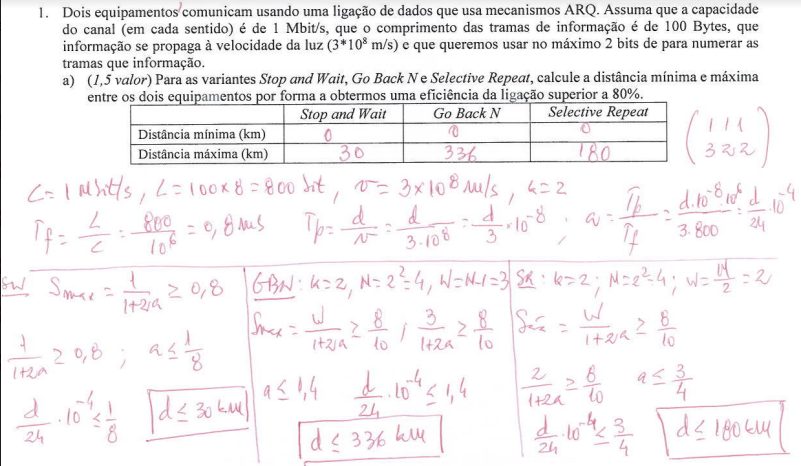 1. Dois equipamentos comunicam usando uma ligação de dados que usa mecanismos ARQ. Assuma que a capacidade
do canal (em cada sentido) é de 1 Mbit/s, que o comprimento das tramas de informação é de 100 Bytes, que
informação se propaga à velocidade da luz (3*10⁸ m/s) e que queremos usar no máximo 2 bits de para numerar as
tramas que informação.
a) (1,5 valor) Para as variantes Stop and Wait, Go Back N e Selective Repeat, calcule a distância mínima e máxima
entre os dois equipamentos por forma a obtermos uma eficiência da ligação superior a 80%.
Stop and Wait Go Back N Selective Repeat
Distância mínima (km) 0 0 0
Distância máxima (km) 30 336 180
( 1 1 1
3 2 2 )
C = 1 Mbit/s , L = 100 x 8 = 800 bit , v = 3 x 10⁸ m/s , k = 2
Tf = L/C = 800/10⁶ = 0,8 ms Tp = d/v = d/3.10⁸ = d/3 . 10⁻⁸ , a = Tp/Tf = d.10⁻⁸.10⁶/3.800 = d/24 .10⁻⁴
SW Smax = 1/1+2a ≥ 0,8
1/1+2a ≥ 0,8 ; a ≤ 1/8
d/24 . 10⁻⁴ ≤ 1/8 d ≤ 30 km
GBN: k=2, N=2²=4, W=N-1=3
Smax = W/1+2a ≥ 8/10 ; 3/1+2a ≥ 8/10
a ≤ 1,4 d/24 .10⁻⁴ ≤ 1,4
d ≤ 336 km
SR : k=2 ; N=2²=4 ; W= N/2 = 2
= W/1+2a ≥ 8/10
2/1+2a ≥ 8/10 a ≤ 3/4
d/24 .10⁻⁴ ≤ 3/4 d ≤ 180 km